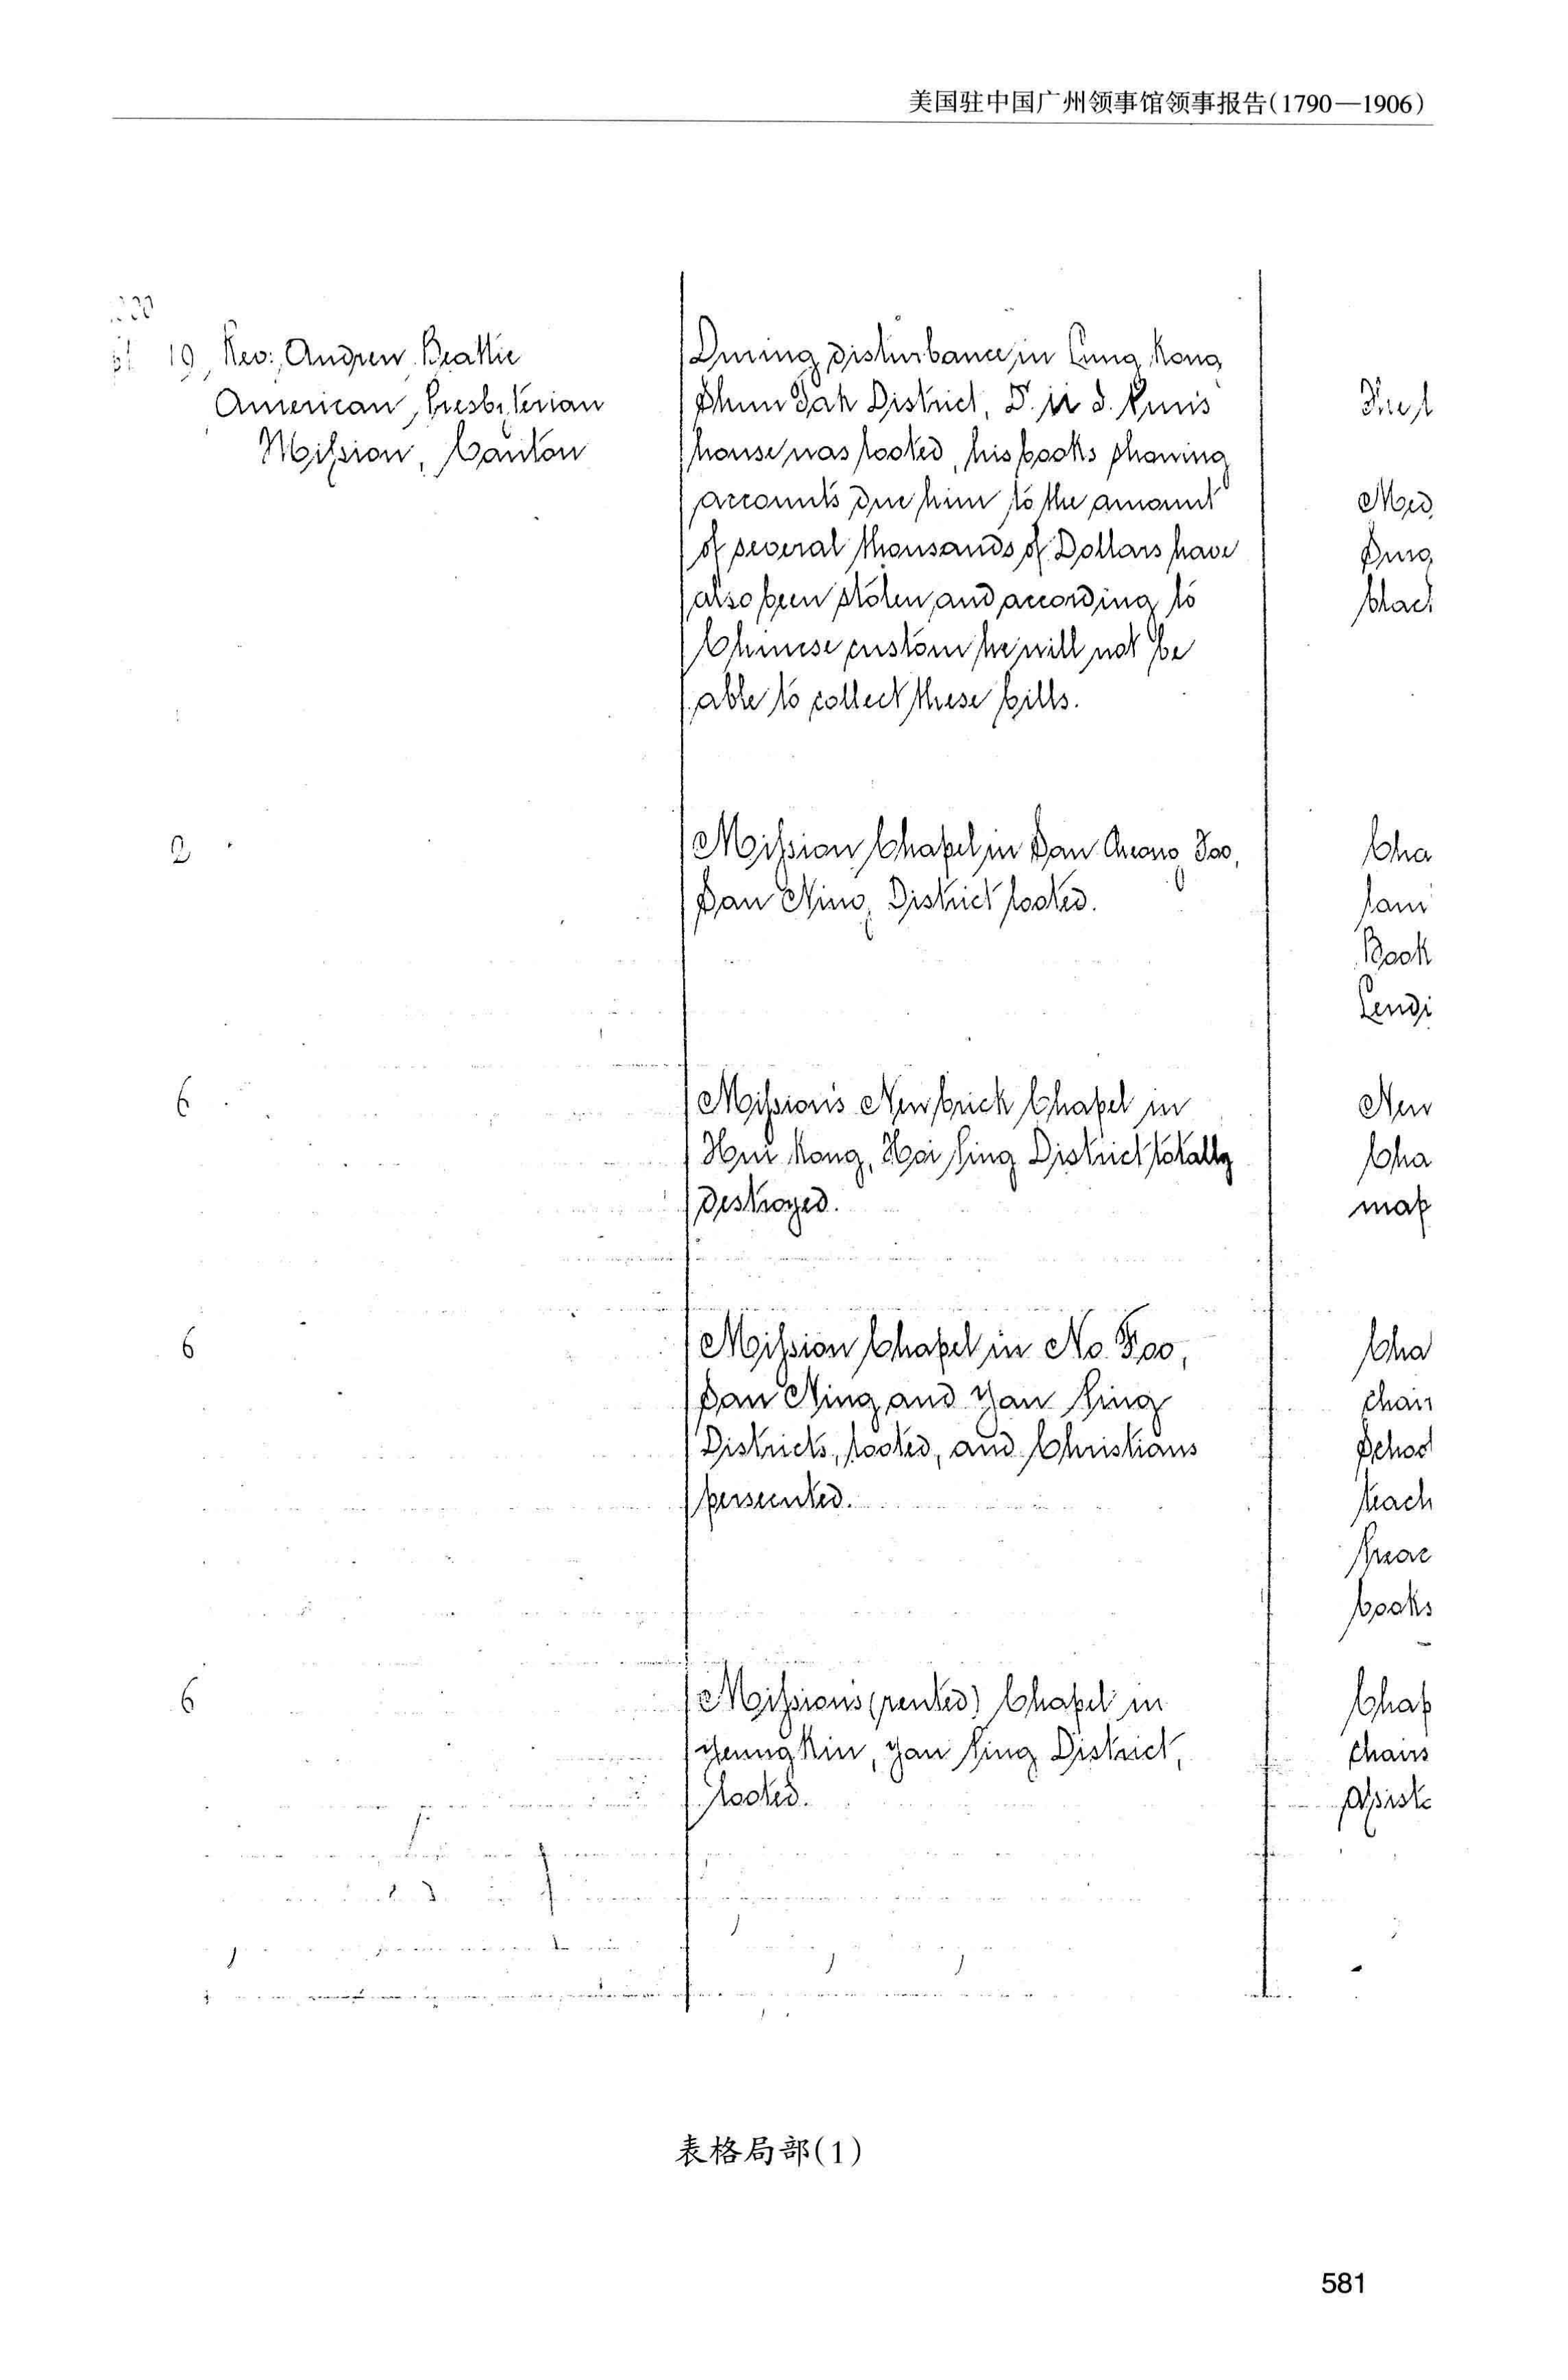 美国驻中国广州领事馆领事报告(1790—1906)
19, Rev: Andrew Beattie
American Presbyterian
Mission, Canton
During disturbance in Lung Kong
Shun Tak District,
house was looted, his books showing
accounts due him to the amount
of several thousands of Dollars have
also been stolen and according to
Chinese custom he will not be
able to collect these bills.
Med
Surg
blac
2
Mission Chapel in San Foo,
San Ning District looted.
Cha
lam
Book
Lendi
6
Mission's New brick Chapel in
Hui Kong, Hoi Ping District totally
destroyed.
New
Cha
map
6
Mission Chapel in No Foo,
San Ning and Yan Ping
Districts, looted, and Christians
persecuted.
Cha
chair
School
teach
books
6
Missions (rented) Chapel in
Yeung Kin, Yan Ping District,
looted.
Chap
chairs
表格局部(1)
581